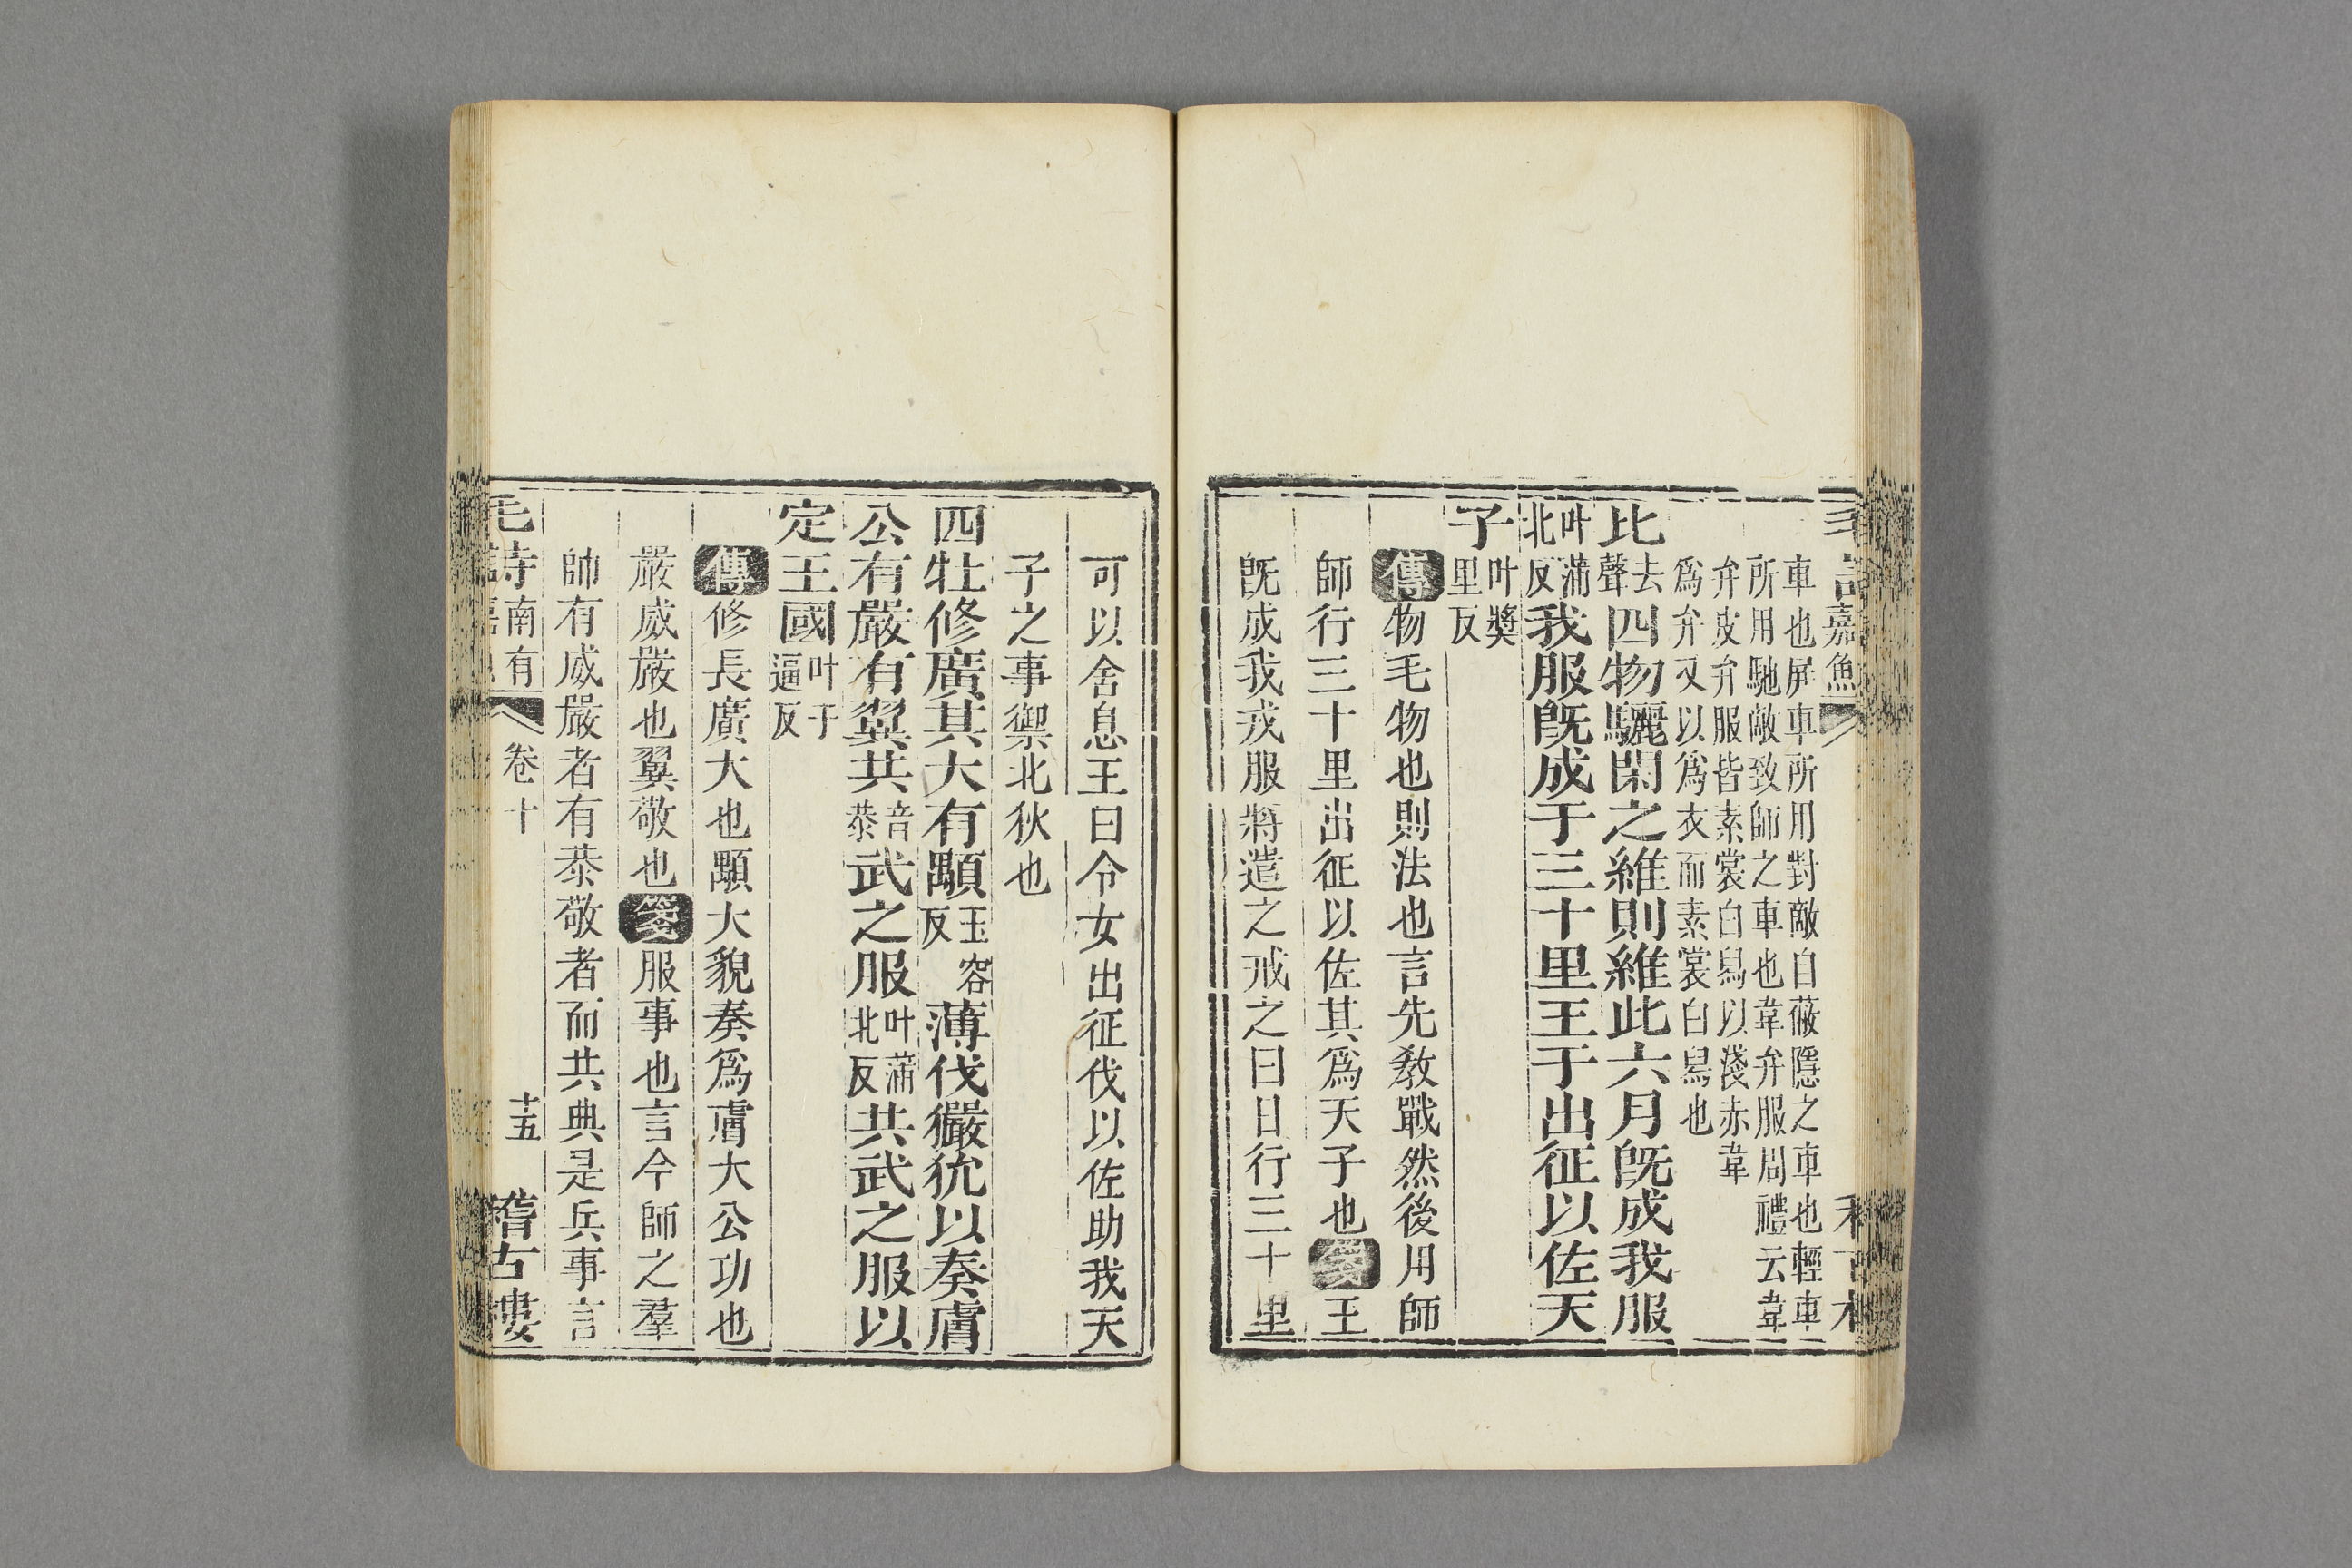 嘉魚
車也屏車所用對敵自蔽隱之車也輕車
所用馳敵致師之車也韋弁服周禮云韋
弁皮弁服皆素裳白舄以淺赤韋
爲弁又以爲衣而素裳白舄也
比去聲四物驪閑之維則維此六月旣成我服
叶蒲北反我服旣成于三十里王于出征以佐天
子叶獎里反
傳物毛物也則法也言先敎戰然後用師
師行三十里出征以佐其爲天子也箋王
旣成我戎服將遣之戒之曰日行三十里
可以舍息王曰今女出征伐以佐助我天
子之事禦北狄也
四牡修廣其大有顒玉容反薄伐玁狁以奏膚
公有嚴有翼共音恭武之服叶蒲北反共武之服以
定王國叶于逼反
傳修長廣大也顒大貌奏爲膚大公功也
嚴威嚴也翼敬也箋服事也言今師之羣
帥有威嚴者有恭敬者而共典是兵事言
毛詩南有嘉魚 卷十 十五 稽古樓